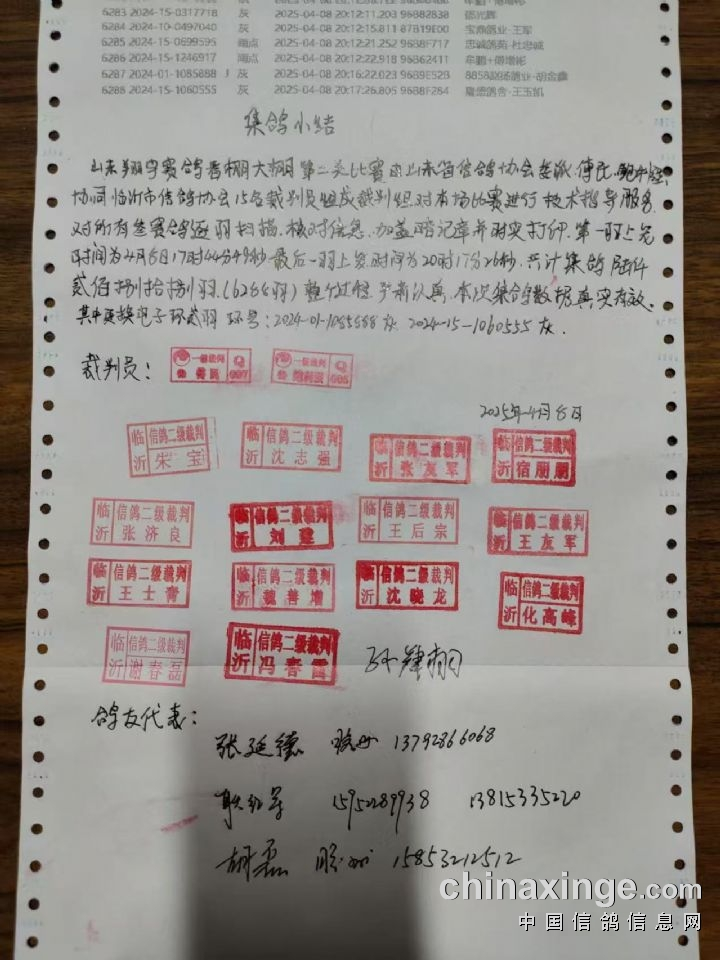 6283 2024-15-0317718 灰 2025-04-08 20:12:11.203 96882838 邵光辉
6284 2024-10-0497040 灰 2025-04-08 20:12:15.811 87B19E00 宝鼎鸽业-王军
6285 2024-15-0699595 雨点 2025-04-08 20:12:21.252 9688F717 忠诚鸽苑-杜忠诚
6286 2024-15-1246917 雨点 2025-04-08 20:12:22.918 96862411 牟鹏+傅增彬
6287 2024-01-1085888 J 灰 2025-04-08 20:16:22.023 9689E52B 8858赵杨鸽业-胡金鑫
6288 2024-15-1060555 灰 2025-04-08 20:17:26.805 9688F284 隆盛鸽舍-王玉凯
集鸽小结
山东翔宇赛鸽春棚大棚第二关比赛由山东省信鸽协会委派
协同临沂市信鸽协会15名裁判员组成裁判组.对本场比赛进行技术指导服务
对所有参赛鸽逐羽扫描.核对信息.加盖暗记章并时实打印.第一羽上笼
时间为4月8日17时44分49秒最后一羽上笼时间为20时17分26秒.共计集鸽陆仟
贰佰捌拾捌羽.(6288羽)整个过程.严肃认真.本次集鸽数据真实有效.
其中更换电子环贰羽 环号:2024-01-1085888灰 2024-15-1060555灰.
裁判员:
一级裁判 007 一级裁判 005
2025年4月8日
临沂 信鸽二级裁判 朱宝 临沂 信鸽二级裁判 沈志强 临沂 信鸽二级裁判 张友军 临沂 信鸽二级裁判 宿朋朋
临沂 信鸽二级裁判 张济良 临沂 信鸽二级裁判 刘建 临沂 信鸽二级裁判 王后宗 临沂 信鸽二级裁判 王友军
临沂 信鸽二级裁判 王士青 临沂 信鸽二级裁判 魏善增 临沂 信鸽二级裁判 沈晓龙 临沂 信鸽二级裁判 化高峰
临沂 信鸽二级裁判 谢春磊 临沂 信鸽二级裁判 冯春雷
鸽友代表:
张延德 胶州 13792866068
耿红军 15952289938 13815335220
胡磊 胶州 15853212512
chinaxinge.com
中国信鸽信息网